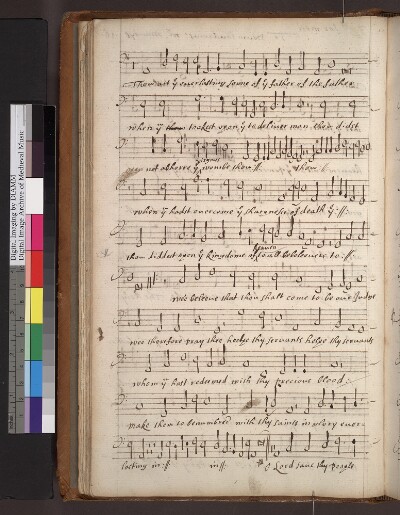 Thou art yᵉ everlasting sonne of yᵉ father of the father
when yᵉ tookest upon yᵉ to deliver man thou didst
not abhorre yᵉ virgins wombe thou :||: thou :||:
when yᵉ hadst overcome yᵉ sharpnesse of death yᵉ :||:
thou didst open yᵉ kingdome of heaven to all beleevers to :||:
wee beleeve that thou shalt come to be our Judge
wee therefore pray thee helpe thy servants helpe thy servants
whom yᵉ hast redeemed with thy precious blood :
make them to be numbred with thy saints in glory ever-
lasting in :||: in :||: O Lord save thy people
Digit. Imaging by DIAMM
Digital Image Archive of Medieval Music